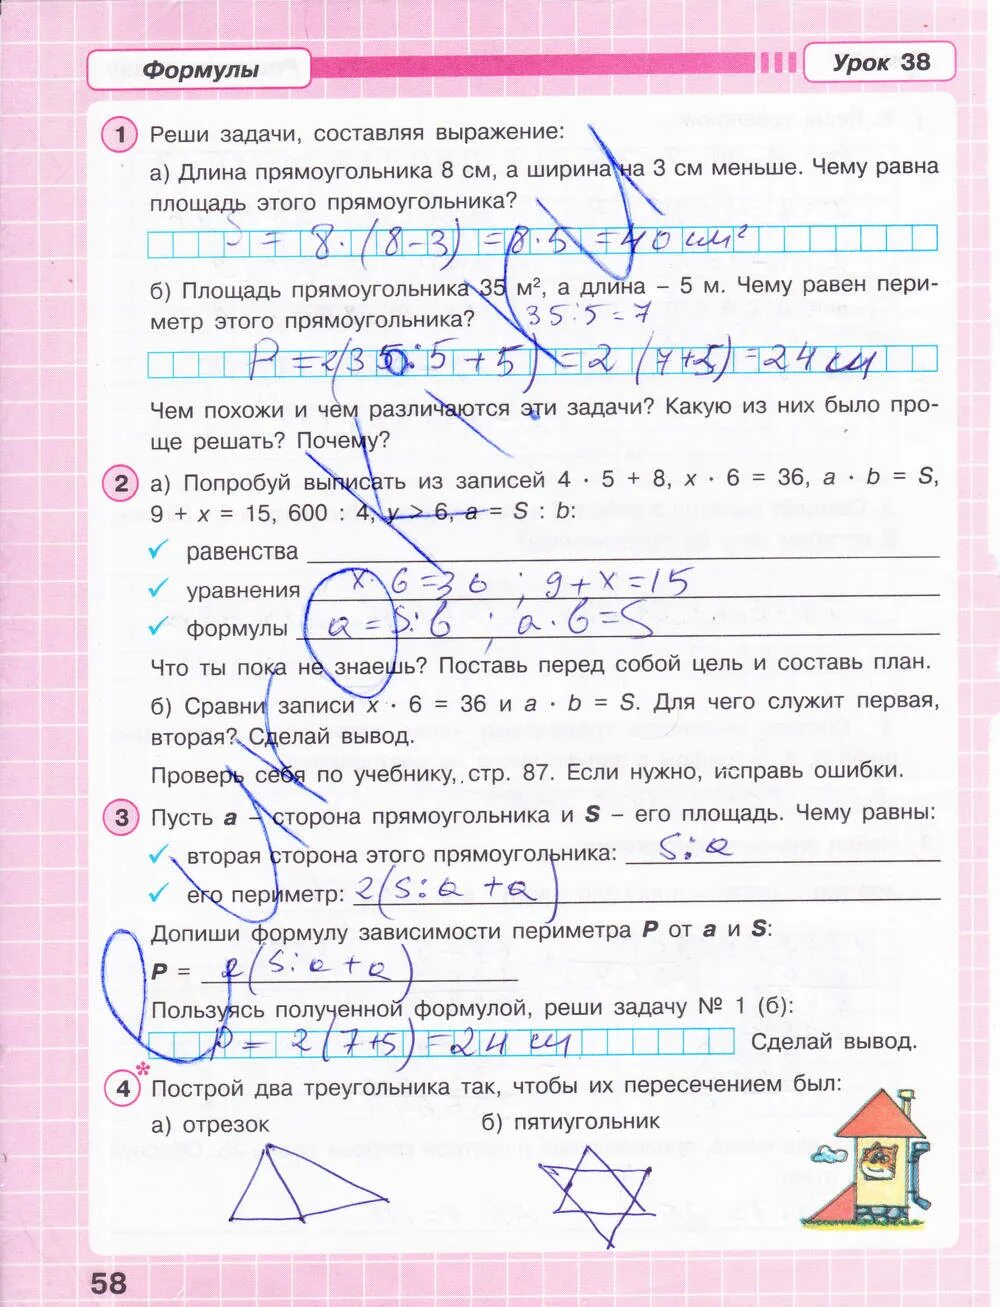 Формулы
Урок 38
1 Реши задачи, составляя выражение:
а) Длина прямоугольника 8 см, а ширина на 3 см меньше. Чему равна
площадь этого прямоугольника?
S = 8 · (8 - 3) = 8 · 5 = 40 см²
б) Площадь прямоугольника 35 м², а длина – 5 м. Чему равен пери-
метр этого прямоугольника? 35:5=7
P = 2(35:5+5) = 2 (7+5) = 24 см
Чем похожи и чем различаются эти задачи? Какую из них было про-
ще решать? Почему?
2 а) Попробуй выписать из записей 4 · 5 + 8, x · 6 = 36, a · b = S,
9 + x = 15, 600 : 4, y > 6, a = S : b:
✓ равенства
✓ уравнения x · 6 = 36 ; 9 + x = 15
✓ формулы a = S:b ; a · b = S
Что ты пока не знаешь? Поставь перед собой цель и составь план.
б) Сравни записи x · 6 = 36 и a · b = S. Для чего служит первая,
вторая? Сделай вывод.
Проверь себя по учебнику, стр. 87. Если нужно, исправь ошибки.
3 Пусть a – сторона прямоугольника и S – его площадь. Чему равны:
✓ вторая сторона этого прямоугольника: S:a
✓ его периметр: 2(S:a + a)
Допиши формулу зависимости периметра P от a и S:
P = 2(S:a + a)
Пользуясь полученной формулой, реши задачу № 1 (б):
P = 2(7+5) = 24 см Сделай вывод.
4* Построй два треугольника так, чтобы их пересечением был:
а) отрезок б) пятиугольник
58